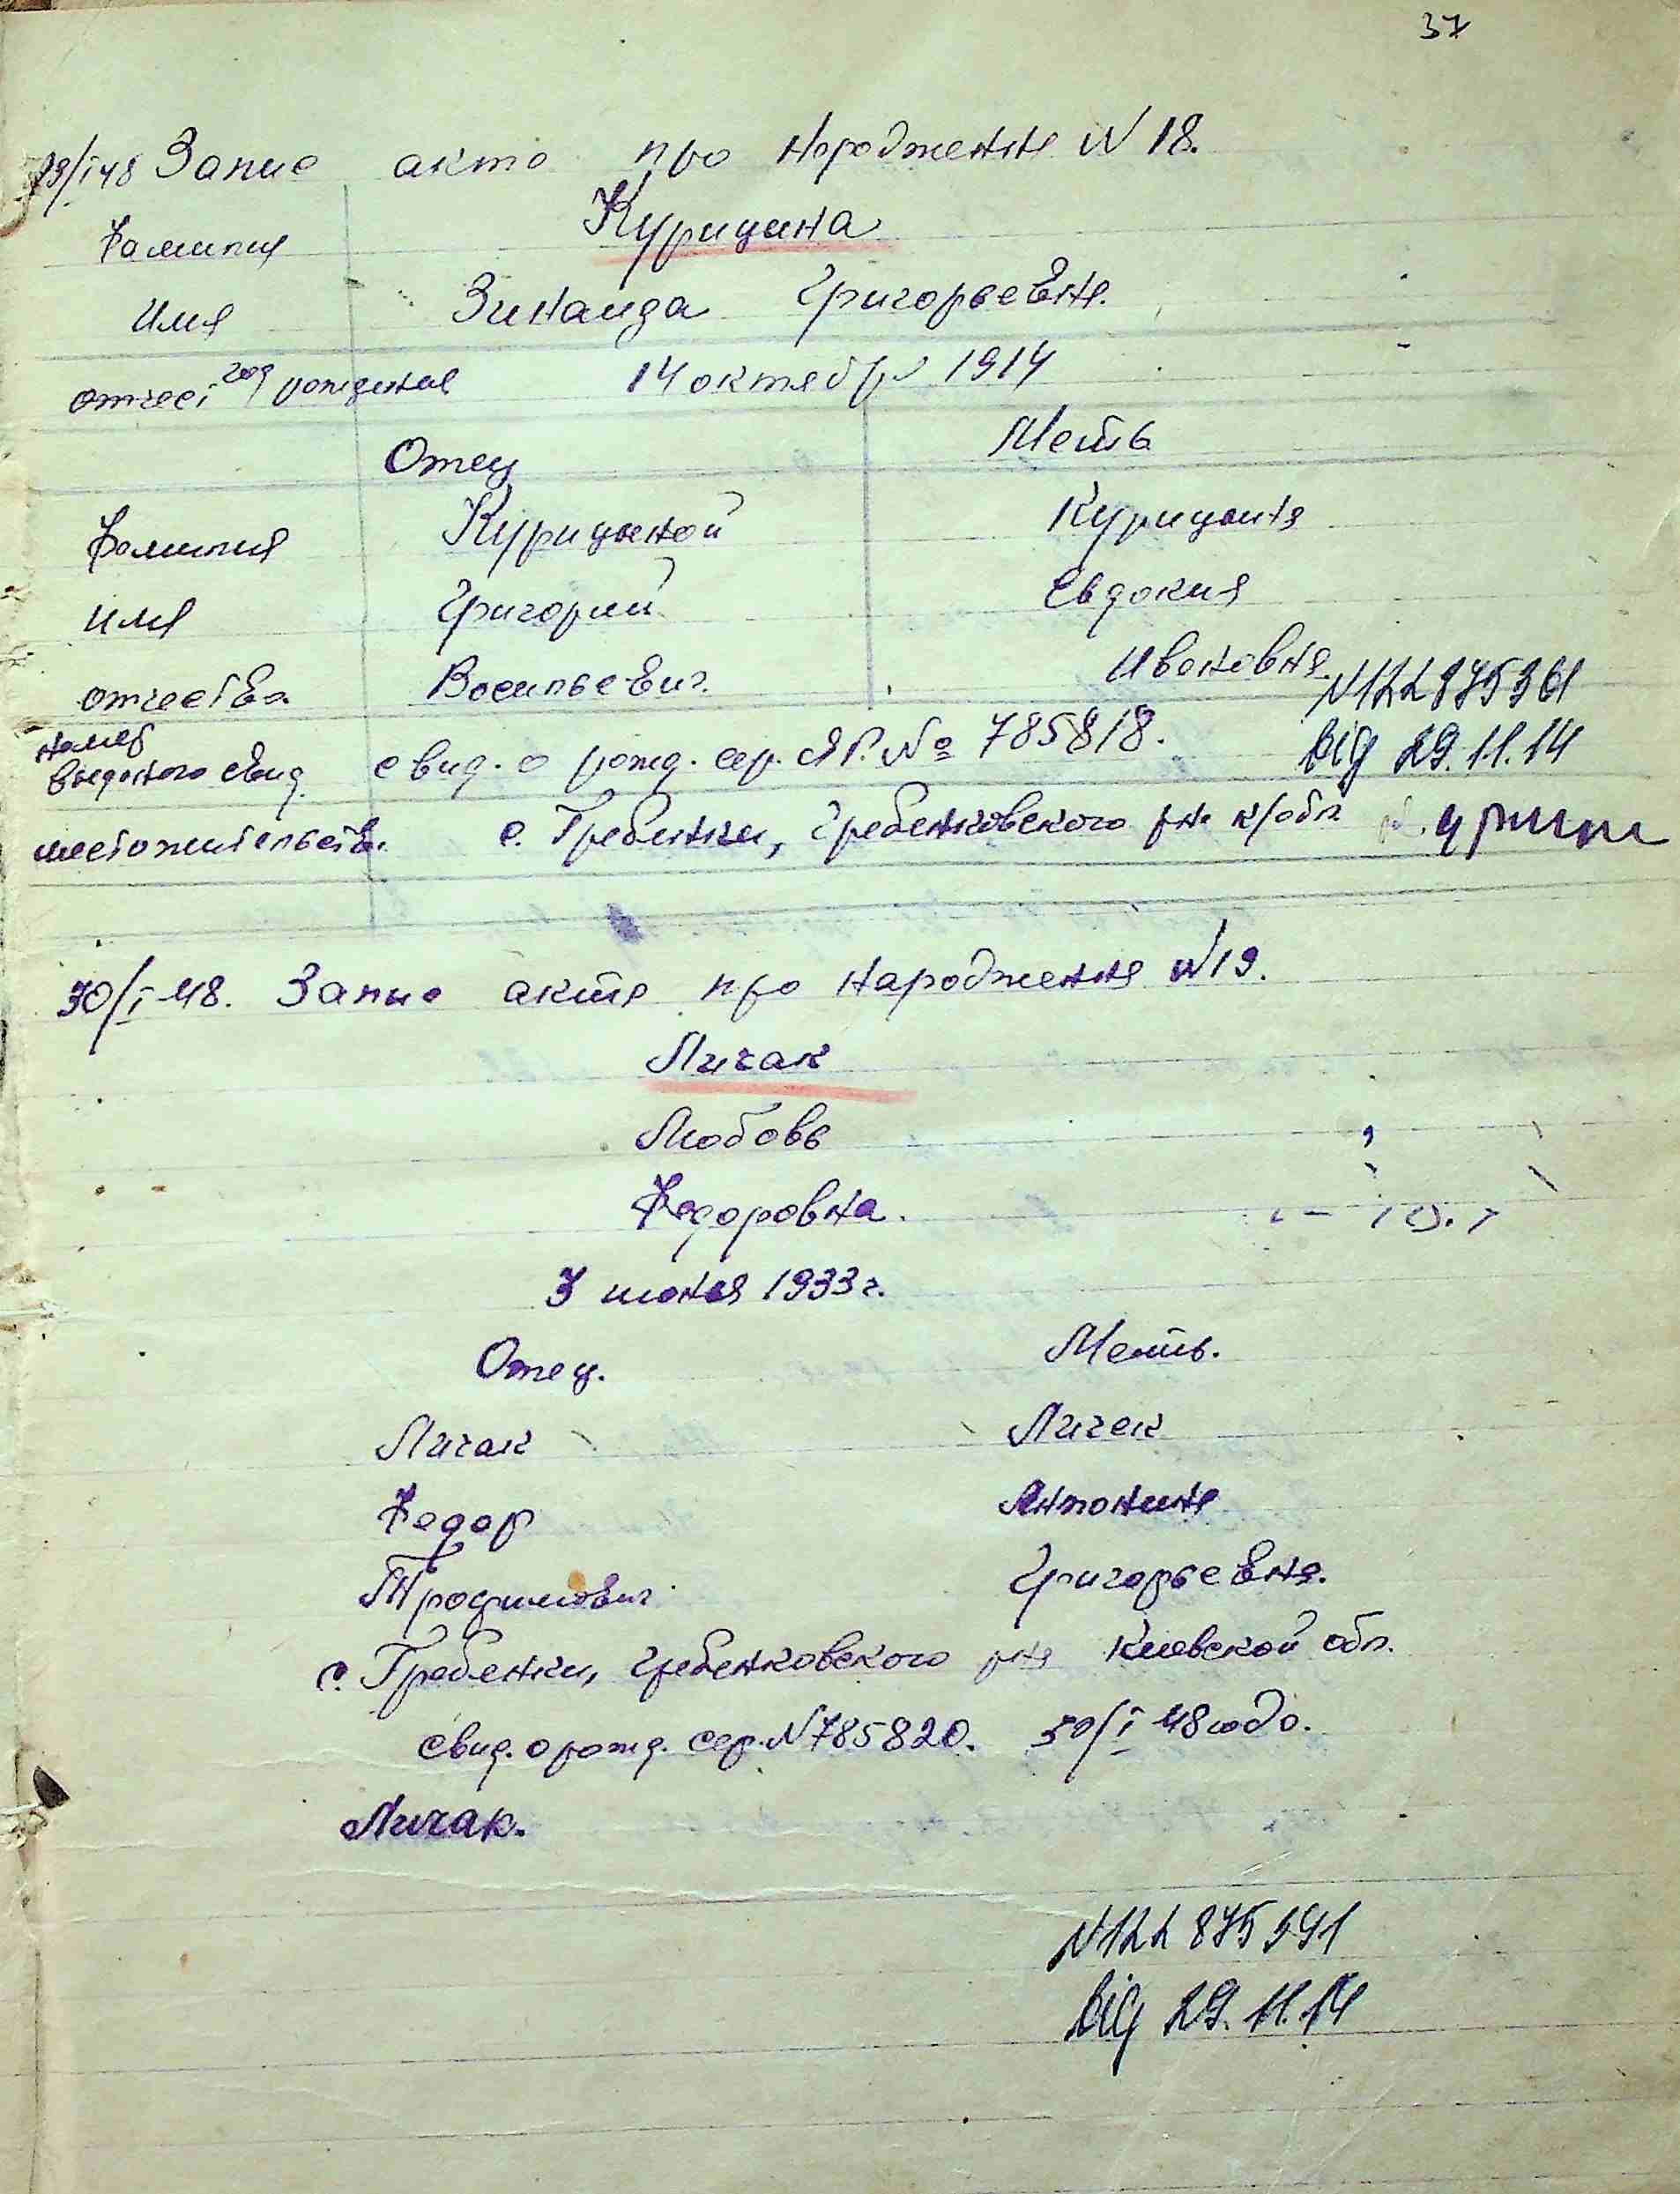 37
Запис акта про народження N 18.
Фамилия Курицина
Имя Зинаида Григорьевна.
отчест год рождения 14 октября 1914
Отец Мать
Фамилия Курицыной Курицина
имя Григорий Евдокия
отчества Васильевич. Ивановна.
N122875361
номер
выданого свид. свид. о рожд. сер. ЯР. № 785818.
від 29.11.14
местожительства. с. Гребинки, Гребенковского р-на к/обл.
30/I-48. Запис акта про народження N19.
Личак
Любовь
Федоровна.
3 июня 1933 г.
Отец. Мать.
Личак Личак
Федор Антонина
Трофимович Григорьевна.
с. Гребенки, Гребенковского р-на Киевской обл.
свид. о рожд. сер. N785820. 30/I 48 года.
Личак.
N122 875391
від 29.11.14